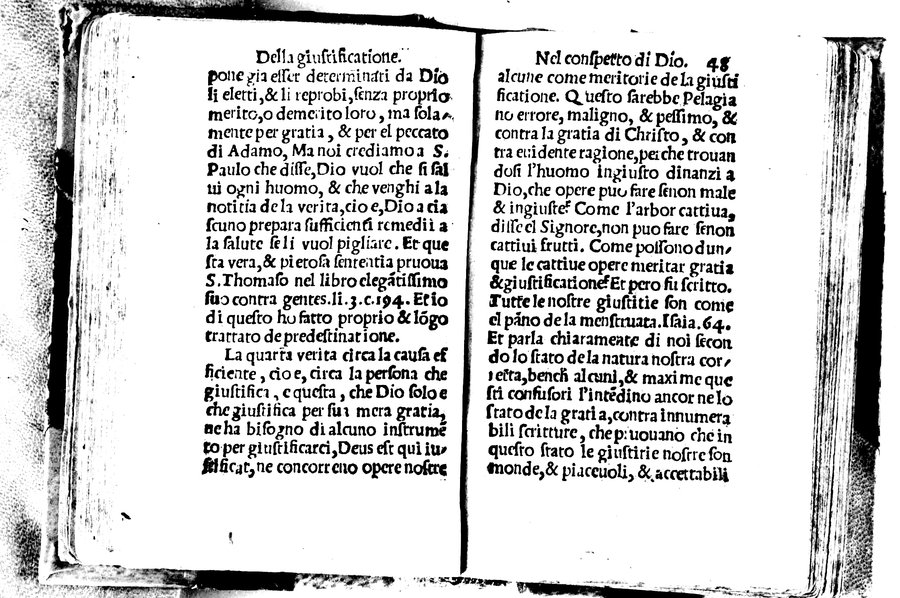 Della giuſtificatione.
pone gia eſſer determinati da Dio
li eletti,& li reprobi,ſenza proprio
merito,o demerito loro, ma ſola⸗
mente per gratia, & per el peccato
di Adamo, Ma noi crediamo a S.
Paulo che diſſe,Dio vuol che ſi ſal
ui ogni huomo, & che venghi a la
notitia de la verita,cio e,Dio a cia
ſcuno prepara ſufficienti remedii a
la ſalute ſe li vuol pigliare. Et que
ſta vera,& pietoſa ſententia pruoua
S.Thomaſo nel libro elegãtiſſimo
ſuo contra gentes.li.3.c.194. Et io
di queſto ho fatto proprio & lõgo
trattato de predeſtinatione.
La quarta verita circa la cauſa ef
ficiente, cio e, circa la perſona che
giuſtifica, e queſta, che Dio ſolo e
che giuſtifica per ſua mera gratia,
ne ha biſogno di alcuno inſtrumẽ
to per giuſtificarci,Deus eſt qui iu⸗
ſtificat,ne concorreno opere noſtre
Nel conſpetto di Dio. 48
alcune come meritorie de la giuſti
ficatione. Queſto ſarebbe Pelagia
no errore, maligno, & peſſimo, &
contra la gratia di Chriſto, & con
tra euidente ragione,perche trouan
doſi l'huomo ingiuſto dinanzi a
Dio,che opere puo fare ſenon male
& ingiuſte? Come l'arbor cattiua,
diſſe el Signore,non puo fare ſenon
cattiui frutti. Come poſſono dun⸗
que le cattiue opere meritar gratia
&giuſtificatione? Et pero fu ſcritto.
Tutte le noſtre giuſtitie ſon come
el pãno de la menſtruata.Iſaia.64.
Et parla chiaramente di noi ſecon
do lo ſtato de la natura noſtra cor⸗
retta,bench alcuni,& maxime que
ſti confuſori l'intẽdino ancor ne lo
ſtato de la gratia,contra innumera
bili ſcritture, che pruouano che in
queſto ſtato le giuſtitie noſtre ſon
monde,& piaceuoli, & accettabili